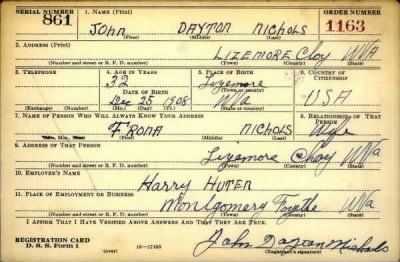 SERIAL NUMBER 1. NAME (Print) ORDER NUMBER
861 JOHN DAYTON NICHOLS 1163
(First) (Middle) (Last)
2. ADDRESS (Print)
LIZEMORE Clay WVa
(Number and street or R. F. D. number) (Town) (County) (State)
3. TELEPHONE 4. AGE IN YEARS 5. PLACE OF BIRTH 6. COUNTRY OF CITIZENSHIP
32 Lizemore
DATE OF BIRTH (Town or county)
Dec 25 1908 WVa USA
(Exchange) (Number) (Mo.) (Day) (Yr.) (State or country)
7. NAME OF PERSON WHO WILL ALWAYS KNOW YOUR ADDRESS 8. RELATIONSHIP OF THAT PERSON
FRONA NICHOLS Wife
(Mr., Mrs., Miss) (First) (Middle) (Last)
9. ADDRESS OF THAT PERSON
Lizemore Clay WVa
(Number and street or R. F. D. number) (Town) (County) (State)
10. EMPLOYER'S NAME
Harry
11. PLACE OF EMPLOYMENT OR BUSINESS
Montgomery WVa
(Number and street or R. F. D. number) (Town) (County) (State)
I AFFIRM THAT I HAVE VERIFIED ABOVE ANSWERS AND THAT THEY ARE TRUE.
REGISTRATION CARD
D. S. S. Form 1 (over) John Dayton Nichols